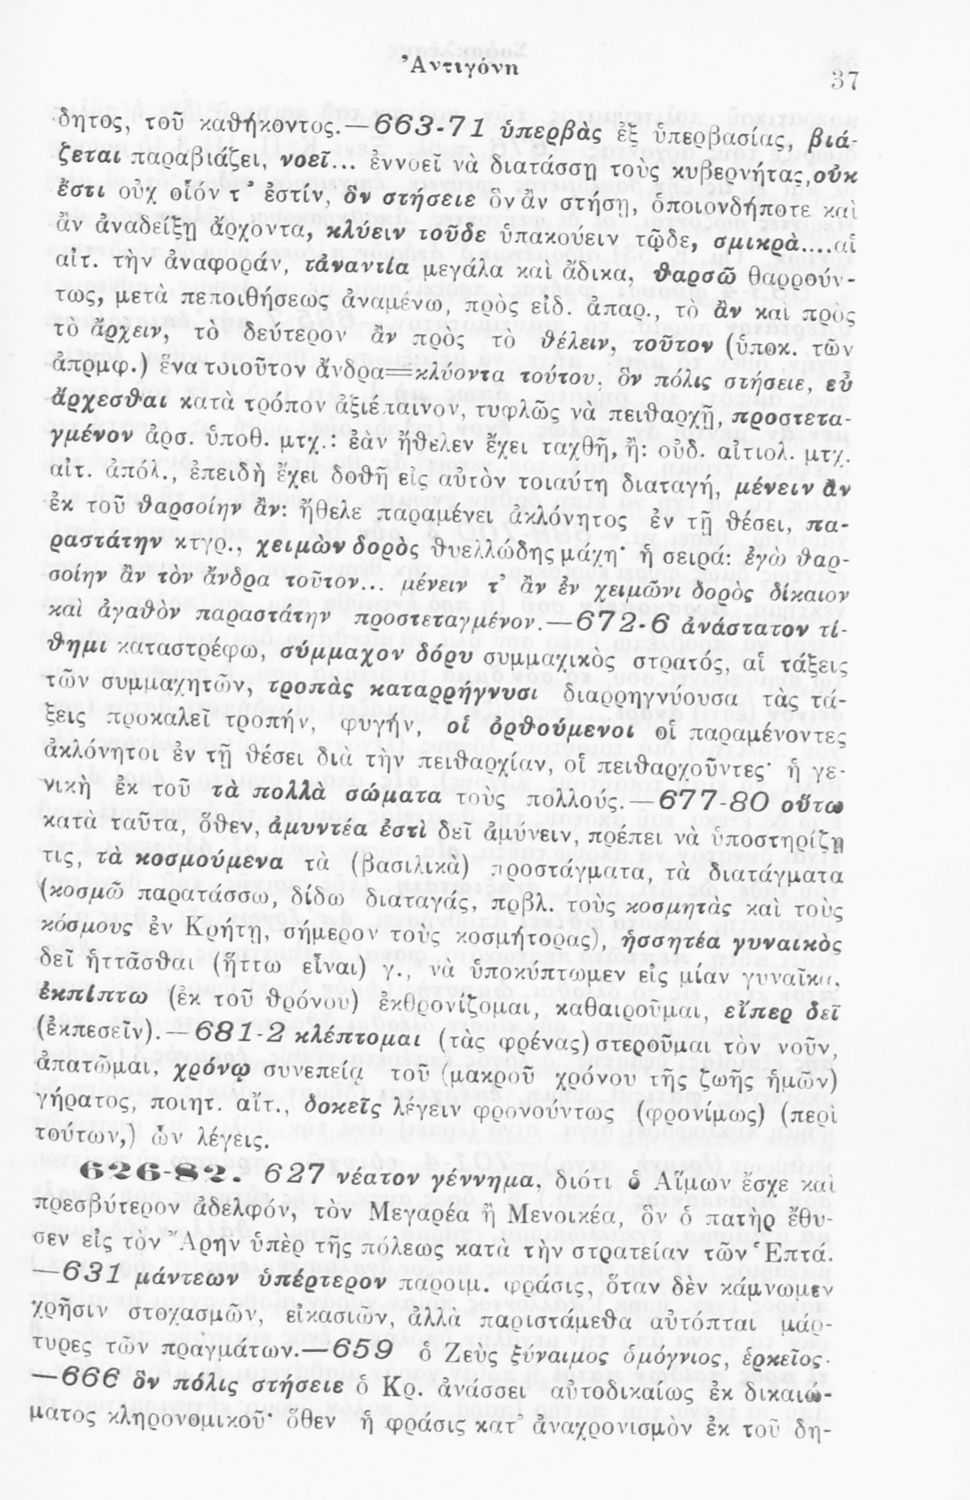 Ἀντιγόνη
37
δητος, τοῦ καθήκοντος.—663-71 ὑπερβὰς ἐξ ὑπερβασίας, βιά-
ζεται παραβιάζει, νοεῖ... ἐννοεῖ νὰ διατάσσῃ τοὺς κυβερνήτας, οὐκ
ἔστι οὐχ οἷόν τ' ἐστίν, ὃν στήσειε ὃν ἂν στήσῃ, ὁποιονδήποτε καὶ
ἂν ἀναδείξῃ ἄρχοντα, κλύειν τοῦδε ὑπακούειν τῷδε, σμικρὰ....αἱ
αἰτ. τὴν ἀναφοράν, τἀναντία μεγάλα καὶ ἄδικα, θαρσῶ θαρρούν-
τως, μετὰ πεποιθήσεως ἀναμένω, πρὸς εἰδ. ἀπαρ., τὸ ἂν καὶ πρὸς
τὸ ἄρχειν, τὸ δεύτερον ἂν πρὸς τὸ θέλειν, τοῦτον (ὑποκ. τῶν
ἀπρμφ.) ἕνα τοιοῦτον ἄνδρα=κλύοντα τούτου, ὃν πόλις στήσειε, εὖ
ἄρχεσθαι κατὰ τρόπον ἀξιέπαινον, τυφλῶς νὰ πειθαρχῇ, προστετα-
γμένον ἀρσ. ὑποθ. μτχ.: ἐὰν ἤθελεν ἔχει ταχθῆ, ἤ: οὐδ. αἰτιολ. μτχ.
αἰτ. ἀπόλ., ἐπειδὴ ἔχει δοθῆ εἰς αὐτὸν τοιαύτη διαταγή, μένειν ἂν
ἐκ τοῦ θαρσοίην ἂν: ἤθελε παραμένει ἀκλόνητος ἐν τῇ θέσει, πα-
ραστάτην κτγρ., χειμὼν δορὸς θυελλώδης μάχη· ἡ σειρά: ἐγὼ θαρ-
σοίην ἂν τὸν ἄνδρα τοῦτον... μένειν τ' ἂν ἐν χειμῶνι δορὸς δίκαιον
καὶ ἀγαθὸν παραστάτην προστεταγμένον.—672-6 ἀνάστατον τί-
θημι καταστρέφω, σύμμαχον δόρυ συμμαχικὸς στρατός, αἱ τάξεις
τῶν συμμαχητῶν, τροπὰς καταρρήγνυσι διαρρηγνύουσα τὰς τά-
ξεις προκαλεῖ τροπήν, φυγήν, οἱ ὀρθούμενοι οἱ παραμένοντες
ἀκλόνητοι ἐν τῇ θέσει διὰ τὴν πειθαρχίαν, οἱ πειθαρχοῦντες· ἡ γε-
νικὴ ἐκ τοῦ τὰ πολλὰ σώματα τοὺς πολλούς.—677-80 οὕτω
κατὰ ταῦτα, ὅθεν, ἀμυντέα ἐστὶ δεῖ ἀμύνειν, πρέπει νὰ ὑποστηρίζῃ
τις, τὰ κοσμούμενα τὰ (βασιλικὰ) προστάγματα, τὰ διατάγματα
(κοσμῶ παρατάσσω, δίδω διαταγάς, πρβλ. τοὺς κοσμητὰς καὶ τοὺς
κόσμους ἐν Κρήτῃ, σήμερον τοὺς κοσμήτορας), ἡσσητέα γυναικὸς
δεῖ ἡττᾶσθαι (ἥττω εἶναι) γ., νὰ ὑποκύπτωμεν εἰς μίαν γυναῖκα,
ἐκπίπτω (ἐκ τοῦ θρόνου) ἐκθρονίζομαι, καθαιροῦμαι, εἴπερ δεῖ
(ἐκπεσεῖν).—681-2 κλέπτομαι (τὰς φρένας) στεροῦμαι τὸν νοῦν,
ἀπατῶμαι, χρόνῳ συνεπείᾳ τοῦ (μακροῦ χρόνου τῆς ζωῆς ἡμῶν)
γήρατος, ποιητ. αἴτ., δοκεῖς λέγειν φρονούντως (φρονίμως) (περὶ
τούτων,) ὧν λέγεις.
626-82. 627 νέατον γέννημα, διότι ὁ Αἵμων ἔσχε καὶ
πρεσβύτερον ἀδελφόν, τὸν Μεγαρέα ἢ Μενοικέα, ὃν ὁ πατὴρ ἔθυ-
σεν εἰς τὸν Ἄρην ὑπὲρ τῆς πόλεως κατὰ τὴν στρατείαν τῶν Ἑπτά.
—631 μάντεων ὑπέρτερον παροιμ. φράσις, ὅταν δὲν κάμνωμεν
χρῆσιν στοχασμῶν, εἰκασιῶν, ἀλλὰ παριστάμεθα αὐτόπται μάρ-
τυρες τῶν πραγμάτων.—659 ὁ Ζεὺς ξύναιμος ὁμόγνιος, ἑρκεῖος·
—666 ὃν πόλις στήσειε ὁ Κρ. ἀνάσσει αὐτοδικαίως ἐκ δικαιώ-
ματος κληρονομικοῦ· ὅθεν ἡ φράσις κατ' ἀναχρονισμὸν ἐκ τοῦ δη-